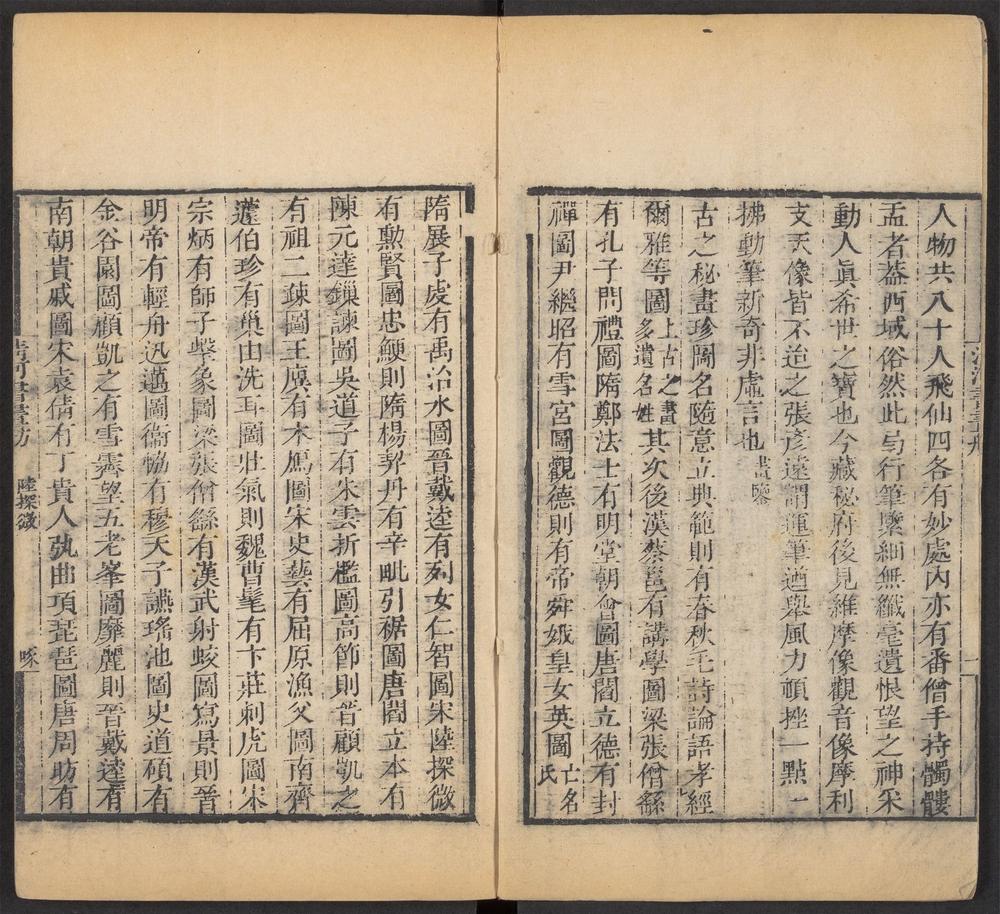 人物共八十人飛仙四各有妙處內亦有番僧手持髑髏
盂者葢西域俗然此局行筆緊細無纖毫遺恨望之神采
動人眞希世之寶也今藏秘府後見維摩像觀音像摩利
支天像皆不迨之張彦遠謂運筆遒舉風力頓挫一點一
拂動筆新奇非虛言也畫鑒
古之秘畫珍圖名隨意立典範則有春秋毛詩論語孝經
爾雅等圖上古之畫多遺名姓其次後漢蔡邕有講學圖梁張僧繇
有孔子問禮圖隋鄭法士有明堂朝會圖唐閻立德有封
禪圖尹繼昭有雪宮圖觀德則有帝舜娥皇女英圖亡名氏
隋展子虔有禹治水圖晉戴逵有列女仁智圖宋陸探微
有勲賢圖忠鯁則隋楊契丹有辛毗引裾圖唐閻立本有
陳元達鏁諫圖吳道子有朱雲折檻圖高節則晉顧凱之
有祖二疎圖王廙有木鴈圖宋史藝有屈原漁父圖南齊
蘧伯珍有巢由洗耳圖壯氣則魏曹髦有卞莊刺虎圖宋
宗炳有師子擊象圖梁張僧繇有漢武射蛟圖寫景則晉
明帝有輕舟迅邁圖衞恊有穆天子讌瑤池圖史道碩有
金谷園圖顧凱之有雪霽望五老峯圖靡麗則晉戴逵有
南朝貴戚圖宋袁倩有丁貴人彈曲項琵琶圖唐周昉有
清河書畫舫
陸探微
啄一